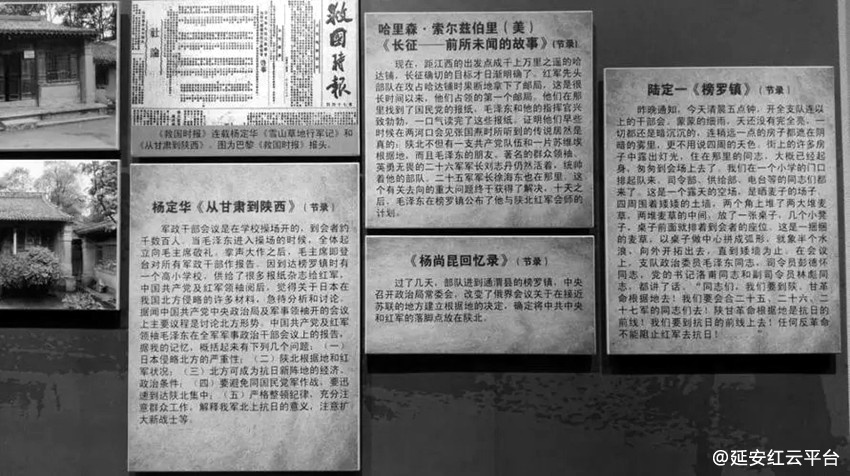 救国时报
社论
《救国时报》连载杨定华《雪山草地行军记》和
《从甘肃到陕西》。图为巴黎《救国时报》报头。
杨定华《从甘肃到陕西》（节录）
军政干部会议是在学校操场开的，到会者约
千数百人，当毛泽东进入操场的时候，全体起
立向毛主席敬礼。掌声大作之后，毛主席即登
台对所有军政干部作报告。因到达榜罗镇时有
一个高小学校，供给了很多报纸杂志给红军，
中国共产党及红军领袖阅后，觉得关于日本在
我国北方侵略的许多材料，急待分析和讨论。
据闻中国共产党中央政治局及军事领袖开的会议
上主要议程是讨论北方形势。中国共产党及红军
领袖毛泽东在全军军事政治干部会议上的报告，
据我的记忆，概括起来有下列几个问题，（一）
日本侵略北方的严重性；（二）陕北根据地和红
军状况；（三）北方可成为抗日新阵地的经济、
政治条件；（四）要避免同国民党军作战，要迅
速到达陕北集中；（五）严格整顿纪律，充分注
意群众工作，解释我军北上抗日的意义，注意扩
大新战士等。
哈里森·索尔兹伯里（美）
《长征——前所未闻的故事》（节录）
现在，距江西的出发点成千上万里之遥的哈
达铺，长征确切的目标才日渐明确了。红军先头
部队在攻占哈达铺时果断地拿下了邮局，这是很
长时间以来，他们占领的第一个邮局。他们在那
里找到了国民党的报纸，毛泽东和他的指挥官兴
致勃勃，一口气读完了这些报纸。证明他们早些
时候在两河口会见张国焘时所听到的传说居然是
真的：陕北不但有一支共产党队伍和一片苏维埃
根据地，而且毛泽东的朋友，著名的群众领袖、
英勇无畏的二十六军军长刘志丹仍然活着，统帅
着他的部队。二十五军军长徐海东也在那里。这
个有关去向的重大问题终于获得了解决。十天之
后，毛泽东在榜罗镇公布了他与陕北红军会师的
计划。
《杨尚昆回忆录》（节录）
过了几天，部队进到通渭县的榜罗镇，中央
召开政治局常委会，改变了俄界会议关于在接近
苏联的地方建立根据地的决定，确定将中共中央
和红军的落脚点放在陕北。
陆定一《榜罗镇》（节录）
昨晚通知，今天清晨五点钟，开全支队连以
上的干部会。蒙蒙的细雨，天还没有完全亮，一
切都还是暗沉沉的，连稍远一点的房子都遮在阴
暗的雾里，更不用说四周的天色。街上的许多房
子中露出灯光，住在那里的同志，大概已经起
身，匆匆到会场上去了。我们在一个小学的门口
排起队来，司令部、供给部、电台等的同志们都
来了。这是一个露天的空场，是晒麦子的场子，
四周围着矮矮的土墙，两个角上堆了两大堆麦
草，两堆麦草的中间，放了一张桌子，几个小凳
子，桌子前面就排着到会者的座位。这是一捆捆
的麦草，以桌子做中心拼成弧形，就象半个水
浪，向外开拓出去，直到矮墙为止。在会议
上，支队政治委员毛泽东同志，司令员彭德怀
同志，党的书记洛甫同志和副司令员林彪同
志，都讲了话。“同志们，我们要到陕、甘革
命根据地去！我们要会合二十五、二十六、二
十七军的同志们去！陕甘革命根据地是抗日的
前线！我们要到抗日的前线上去！任何反革命
不能阻止红军去抗日！”
@延安红云平台